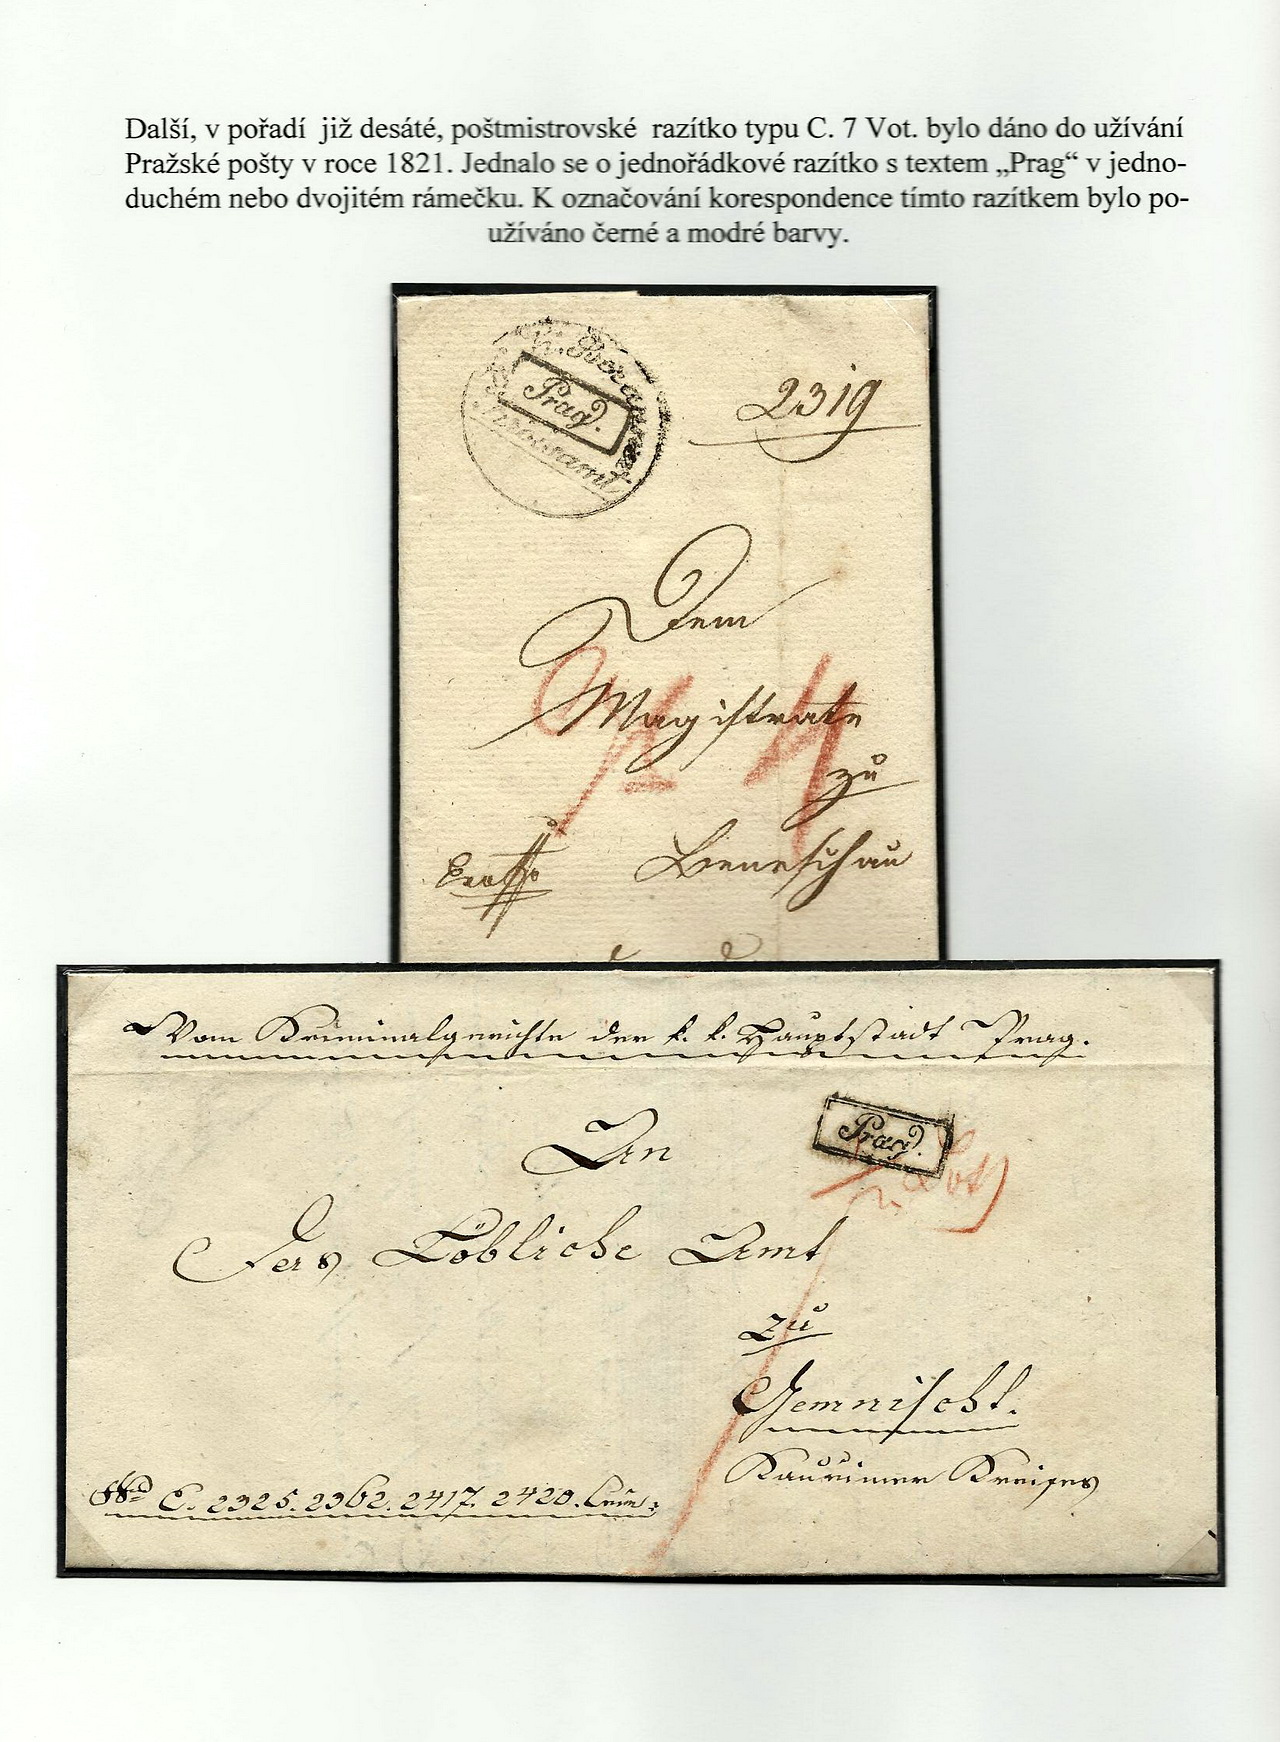 Další, v pořadí již desáté, poštmistrovské razítko typu C. 7 Vot. bylo dáno do užívání
Pražské pošty v roce 1821. Jednalo se o jednořádkové razítko s textem „Prag“ v jedno-
duchém nebo dvojitém rámečku. K označování korespondence tímto razítkem bylo po-
užíváno černé a modré barvy.
Prag.
2319
Dem
Magistrate
zu
Beneschau
Vom Kriminalgerichte der k. k. Hauptstadt Prag.
Prag.
An
Das Löbliche Amt
zu
Gemnischt.
Kaurimer Kreises
C. 2325. 2362. 2417. 2420.